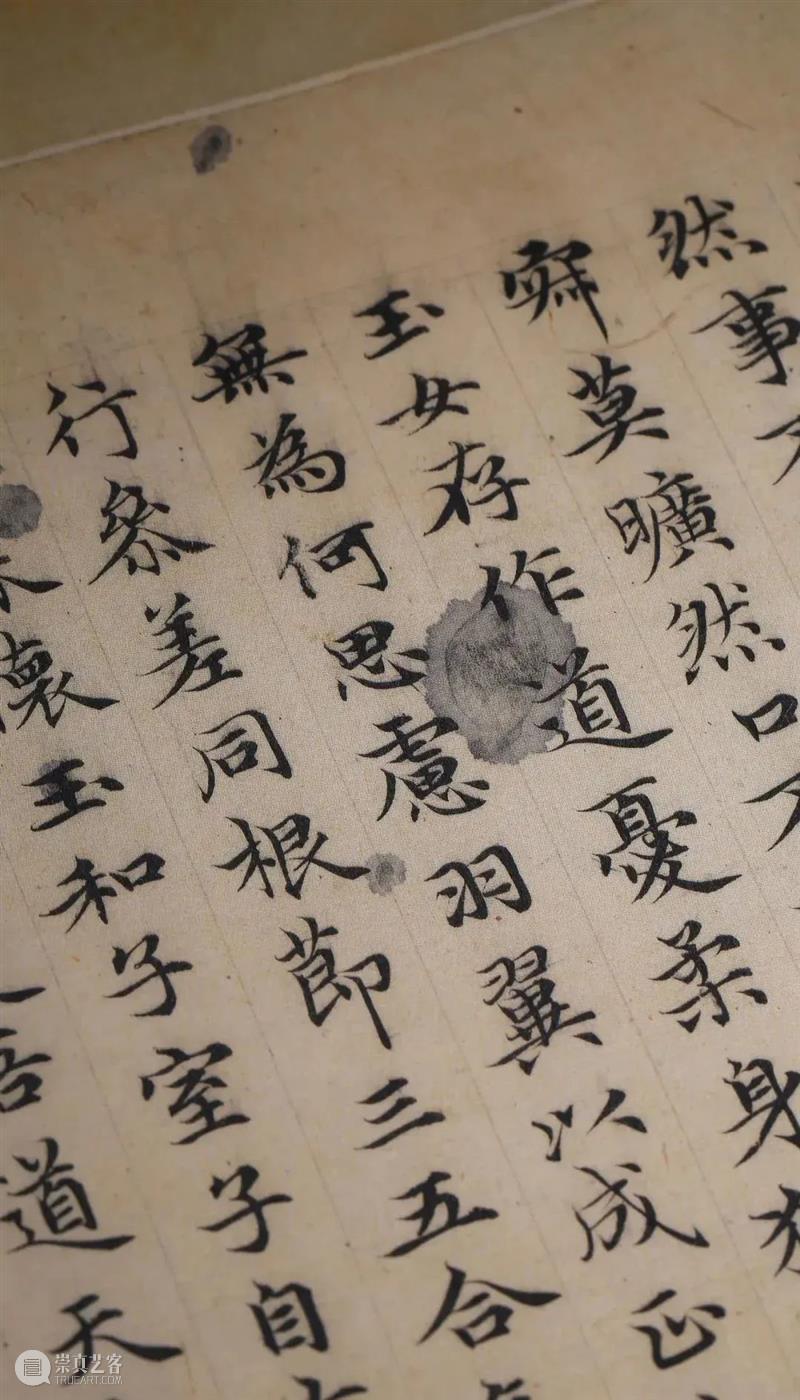 然事
寂莫曠然口不
玉女存作道憂柔身
無為何思慮羽翼以成正
行參差同根節三五合
懷玉和子室子自
道天
崇真艺客
TRUEART.COM